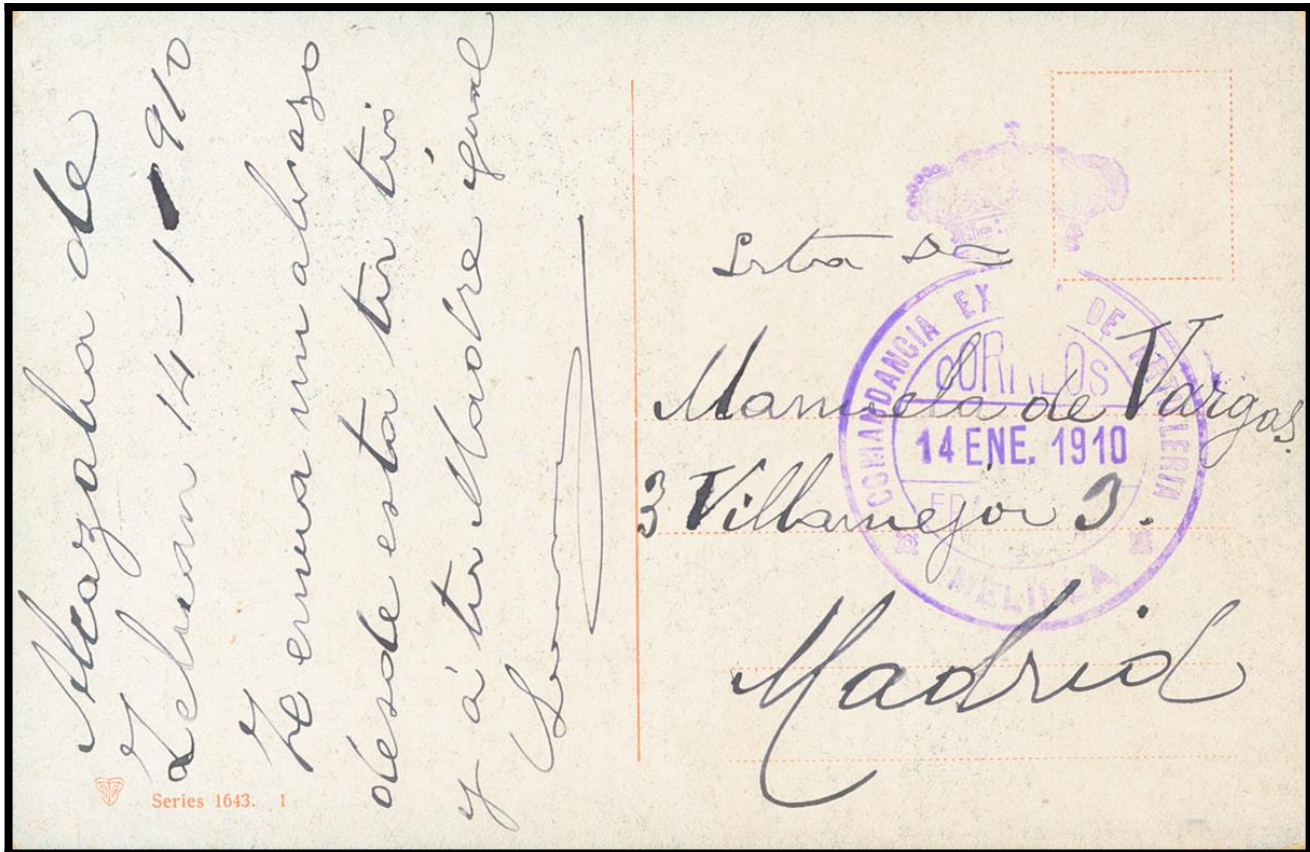 Alcazaba de
Zeluan 14-1-910
Te envia un abrazo
desde esta tu tio
y á tu Madre igual
Srta Da
Manuela de Vargas
3 Villamejor 3.
Madrid
COMANDANCIA EX DE ARTILLERIA
CORREOS
14 ENE. 1910
MELILLA
Series 1643. 1